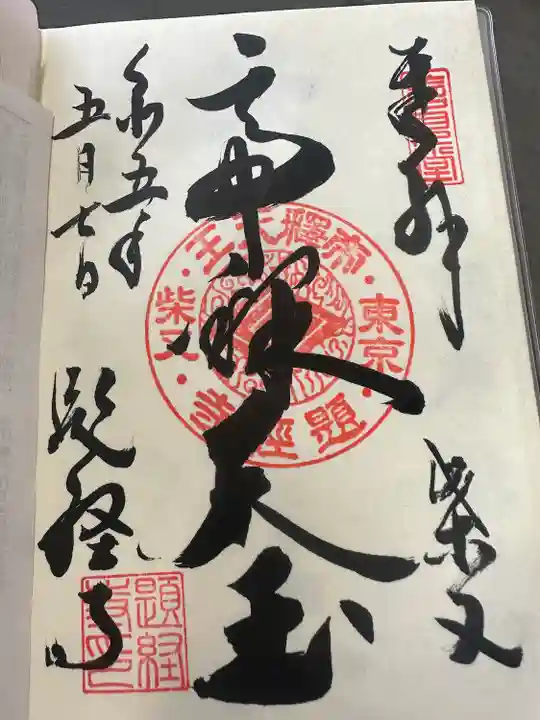 奉拝
柴又
帝釈天王
令五年
五月七日
題経寺
帝釋天王
東京
柴又
題経寺
題経
寺印